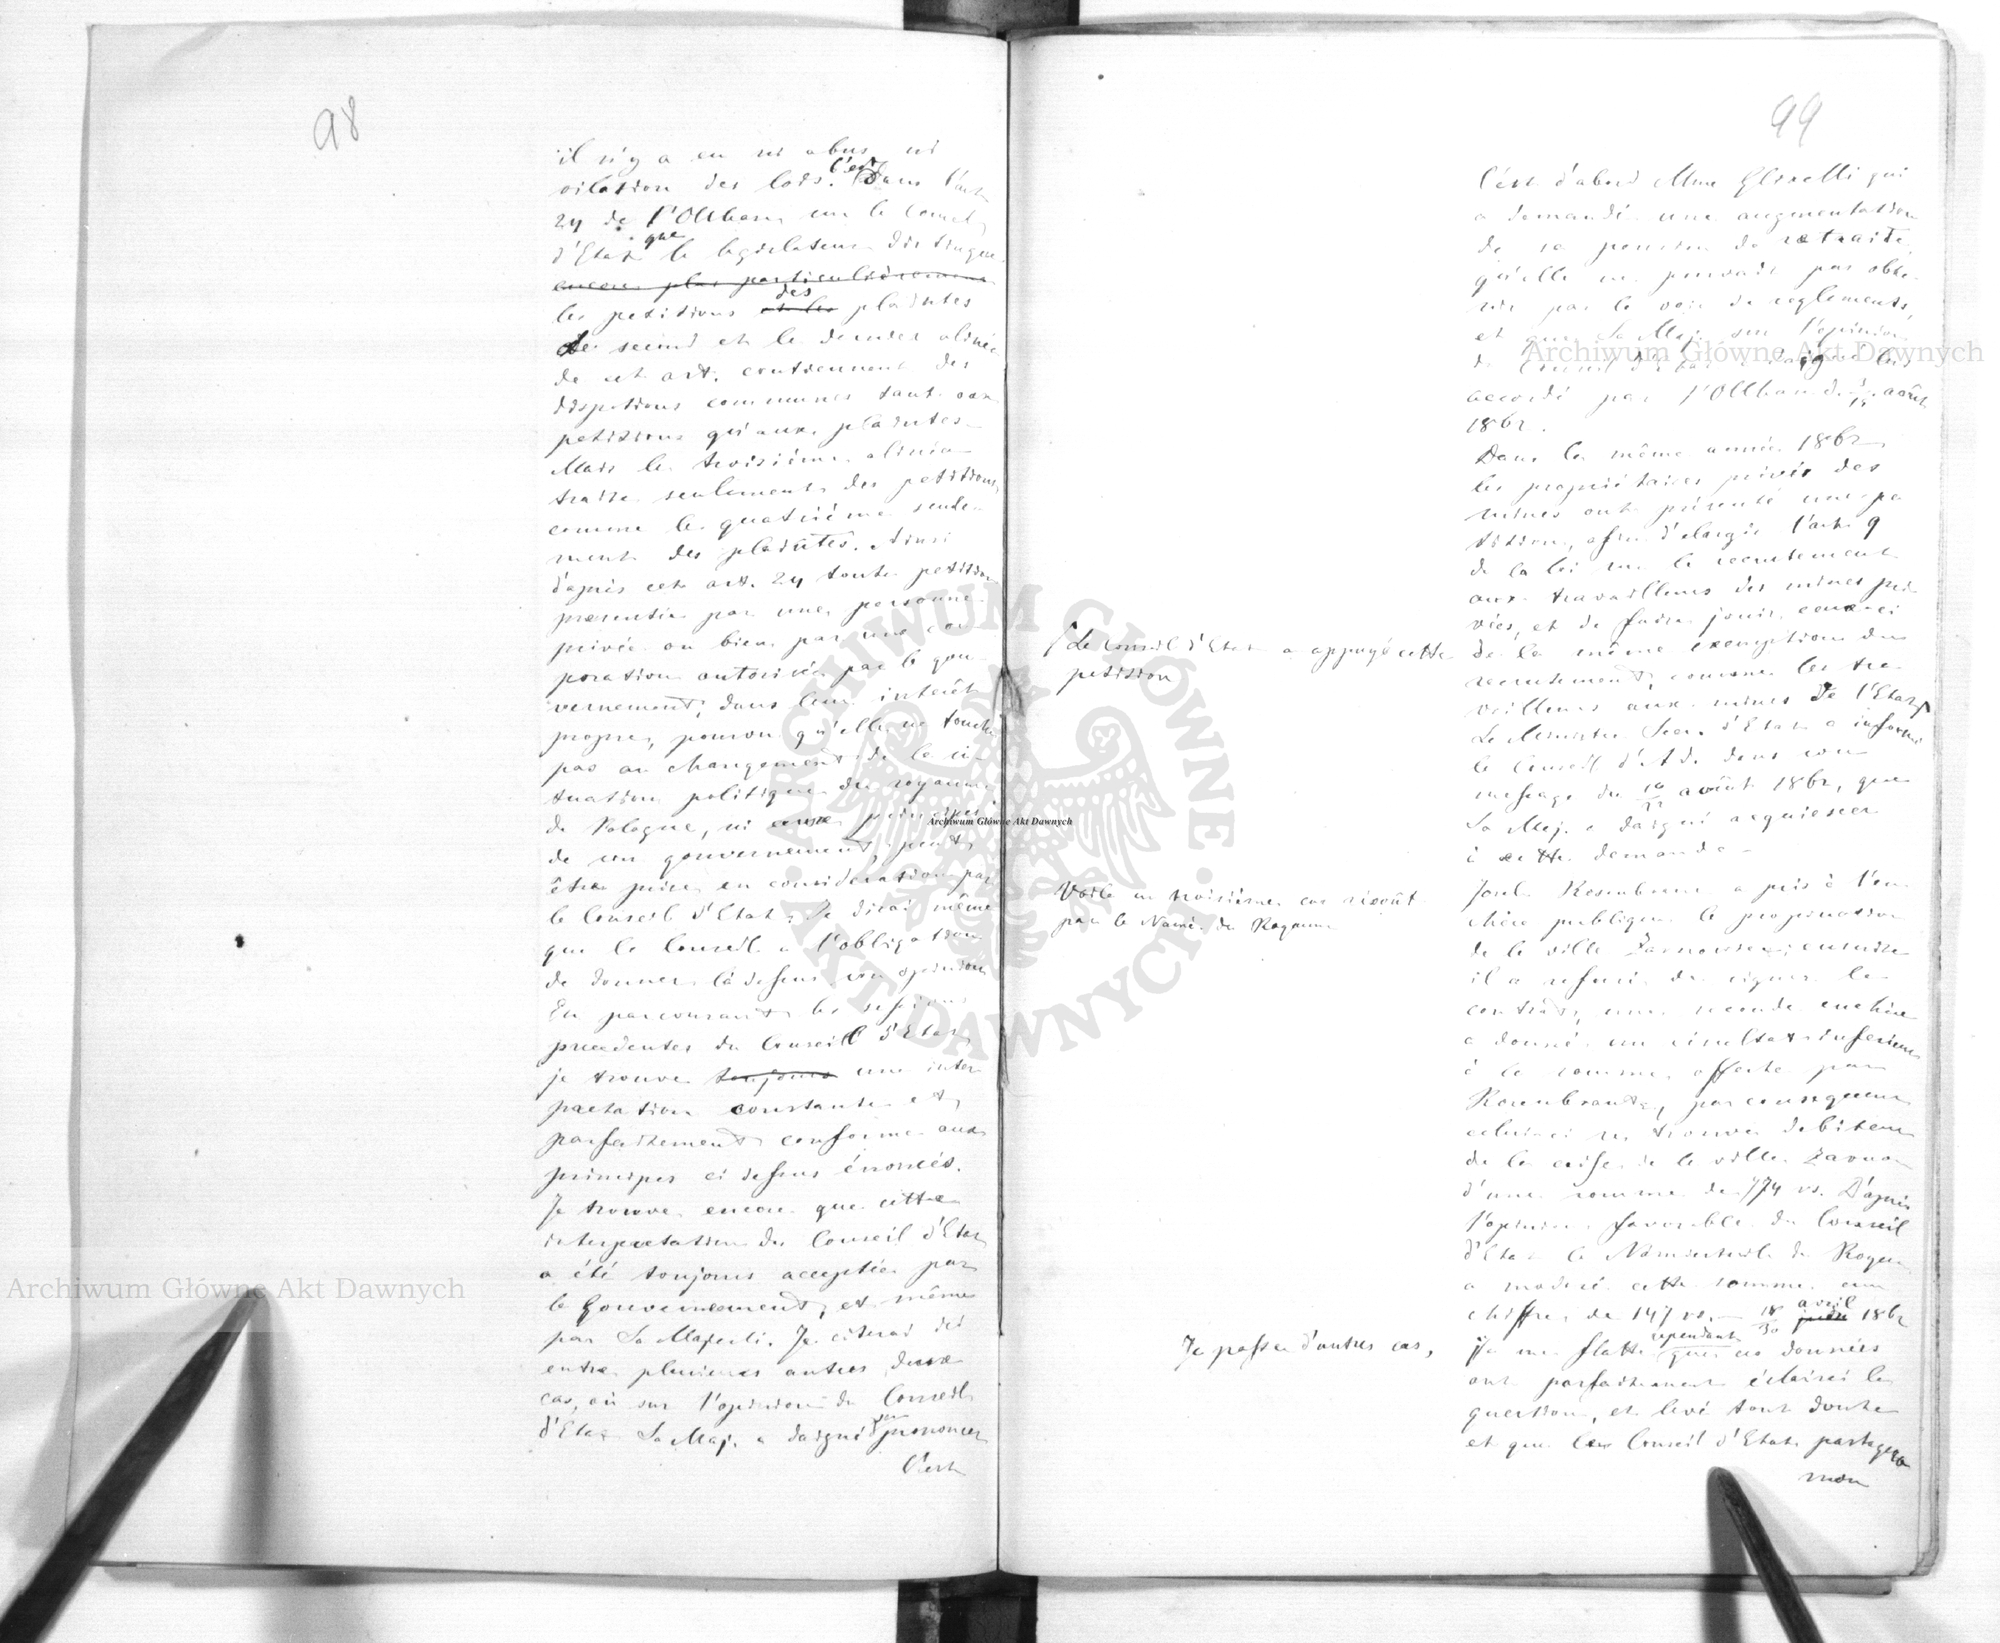 98
il n'y a eu ni abus ni
violation des lois. C'est dans l'art.
24 de l'Ukase sur le Conseil
d'Etat que le legislateur distingue
encore plus particulièrement
les petitions et les des plaintes
Le second et le dernier alinéa
de cet art. contiennent des
dispotions communes tant aux
petitions qu'aux plaintes.
Mais le troisième alinéa
traite seulement des petitions
comme le quatrième seule-
ment des plaintes. Ainsi
d'après cet art. 24 toute petition
presentée par une personne
privée ou bien par une cor
poration autorisée par le gou
vernement, dans leur intérêt
propre, pourvu qu'elle ne touche
pas au changement de la si-
tuation politique du royaume
de Pologne, ni aux principes
de son gouvernement, peut
être prise en consideration par
le Conseil d'Etat. Je dirai même
que le Conseil a l'obligation
de donner là dessus son opinion
En parcourant les sessions
precedentes du Conseil d'Etat
je trouve toujours une inter
pretation constante et
parfaitement conforme aux
principes ci dessus énoncés.
Je trouve encore que cette
interpretation du Conseil d'Etat
a été toujours acceptée par
le gouvernement, et même
par Sa Majesté. Je citerai ici
entre plusieurs autres deux
cas, où sur l'opinion du Conseil
d'Etat Sa Maj. a daigné se prononcer
C'est
99
C'est d'abord Mme qui
a demandé une augmentation
de sa pension de retraite
qu'elle ne pouvait pas obte-
nir par la voie de reglements,
et que Sa Maj. sur l'opinion
du Conseil d'Etat a daigné lui
accordé par l'Ukase du août
1862.
Dans la même année 1862
les propriétaires privés des
mines ont présenté une pe
tition, afin d'elargir l'art. 9
de la loi sur le recrutement
aux travailleurs des mines pri
vées, et de faire jouir ceux-ci
de la même exemption du
recrutement, comme les tra-
vailleurs aux mines de l'Etat
Le Conseil d'Etat a appuyé cette
petition
Le Ministre Secr. d'Etat a informé
le Conseil d'Ad. dans son
message du août 1862, que
Sa Maj. a daigné acquiescer
à cette demande.
Voila un troisième cas résout
par le Namies. du Royaume
Rosenbrant a pris à l'en
chère publique la propination
de la ville ensuite
il a refusé de signer le
contrat, une seconde enchère
a donné un resultat inferieur
à la somme offerte par
Rosenbrant, par consequent
celui-ci se trouve debiteur
de la caisse de la ville
d'une somme de 774 rs. D'après
l'opinion favorable du Conseil
d'Etat le Namiestnik du Royau
a modéré cette somme au
chiffre de 147 rs. 18/30 avril 1862
Je passe d'autres cas,
Je me flatte cependant que ces données
ont parfaitement éclairci la
question, et levé tout doute
et que le Conseil d'Etat partagera
mon
Archiwum Główne Akt Dawnych
Archiwum Główne Akt Dawnych
Archiwum Główne Akt Dawnych
ARCHIWUM GŁÓWNE AKT DAWNYCH